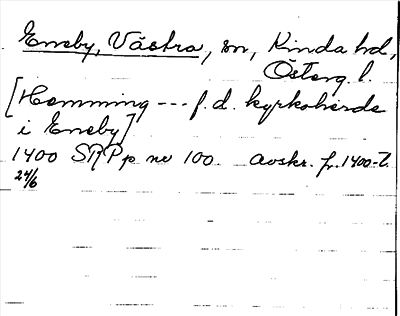 Eneby, Västra, sn, Kinda hd,
Österg. l.
[Hemming --- f.d. kyrkoherde
i Eneby]
1400 SRPp nr 100. avskr. fr. 1400-t.
24/6